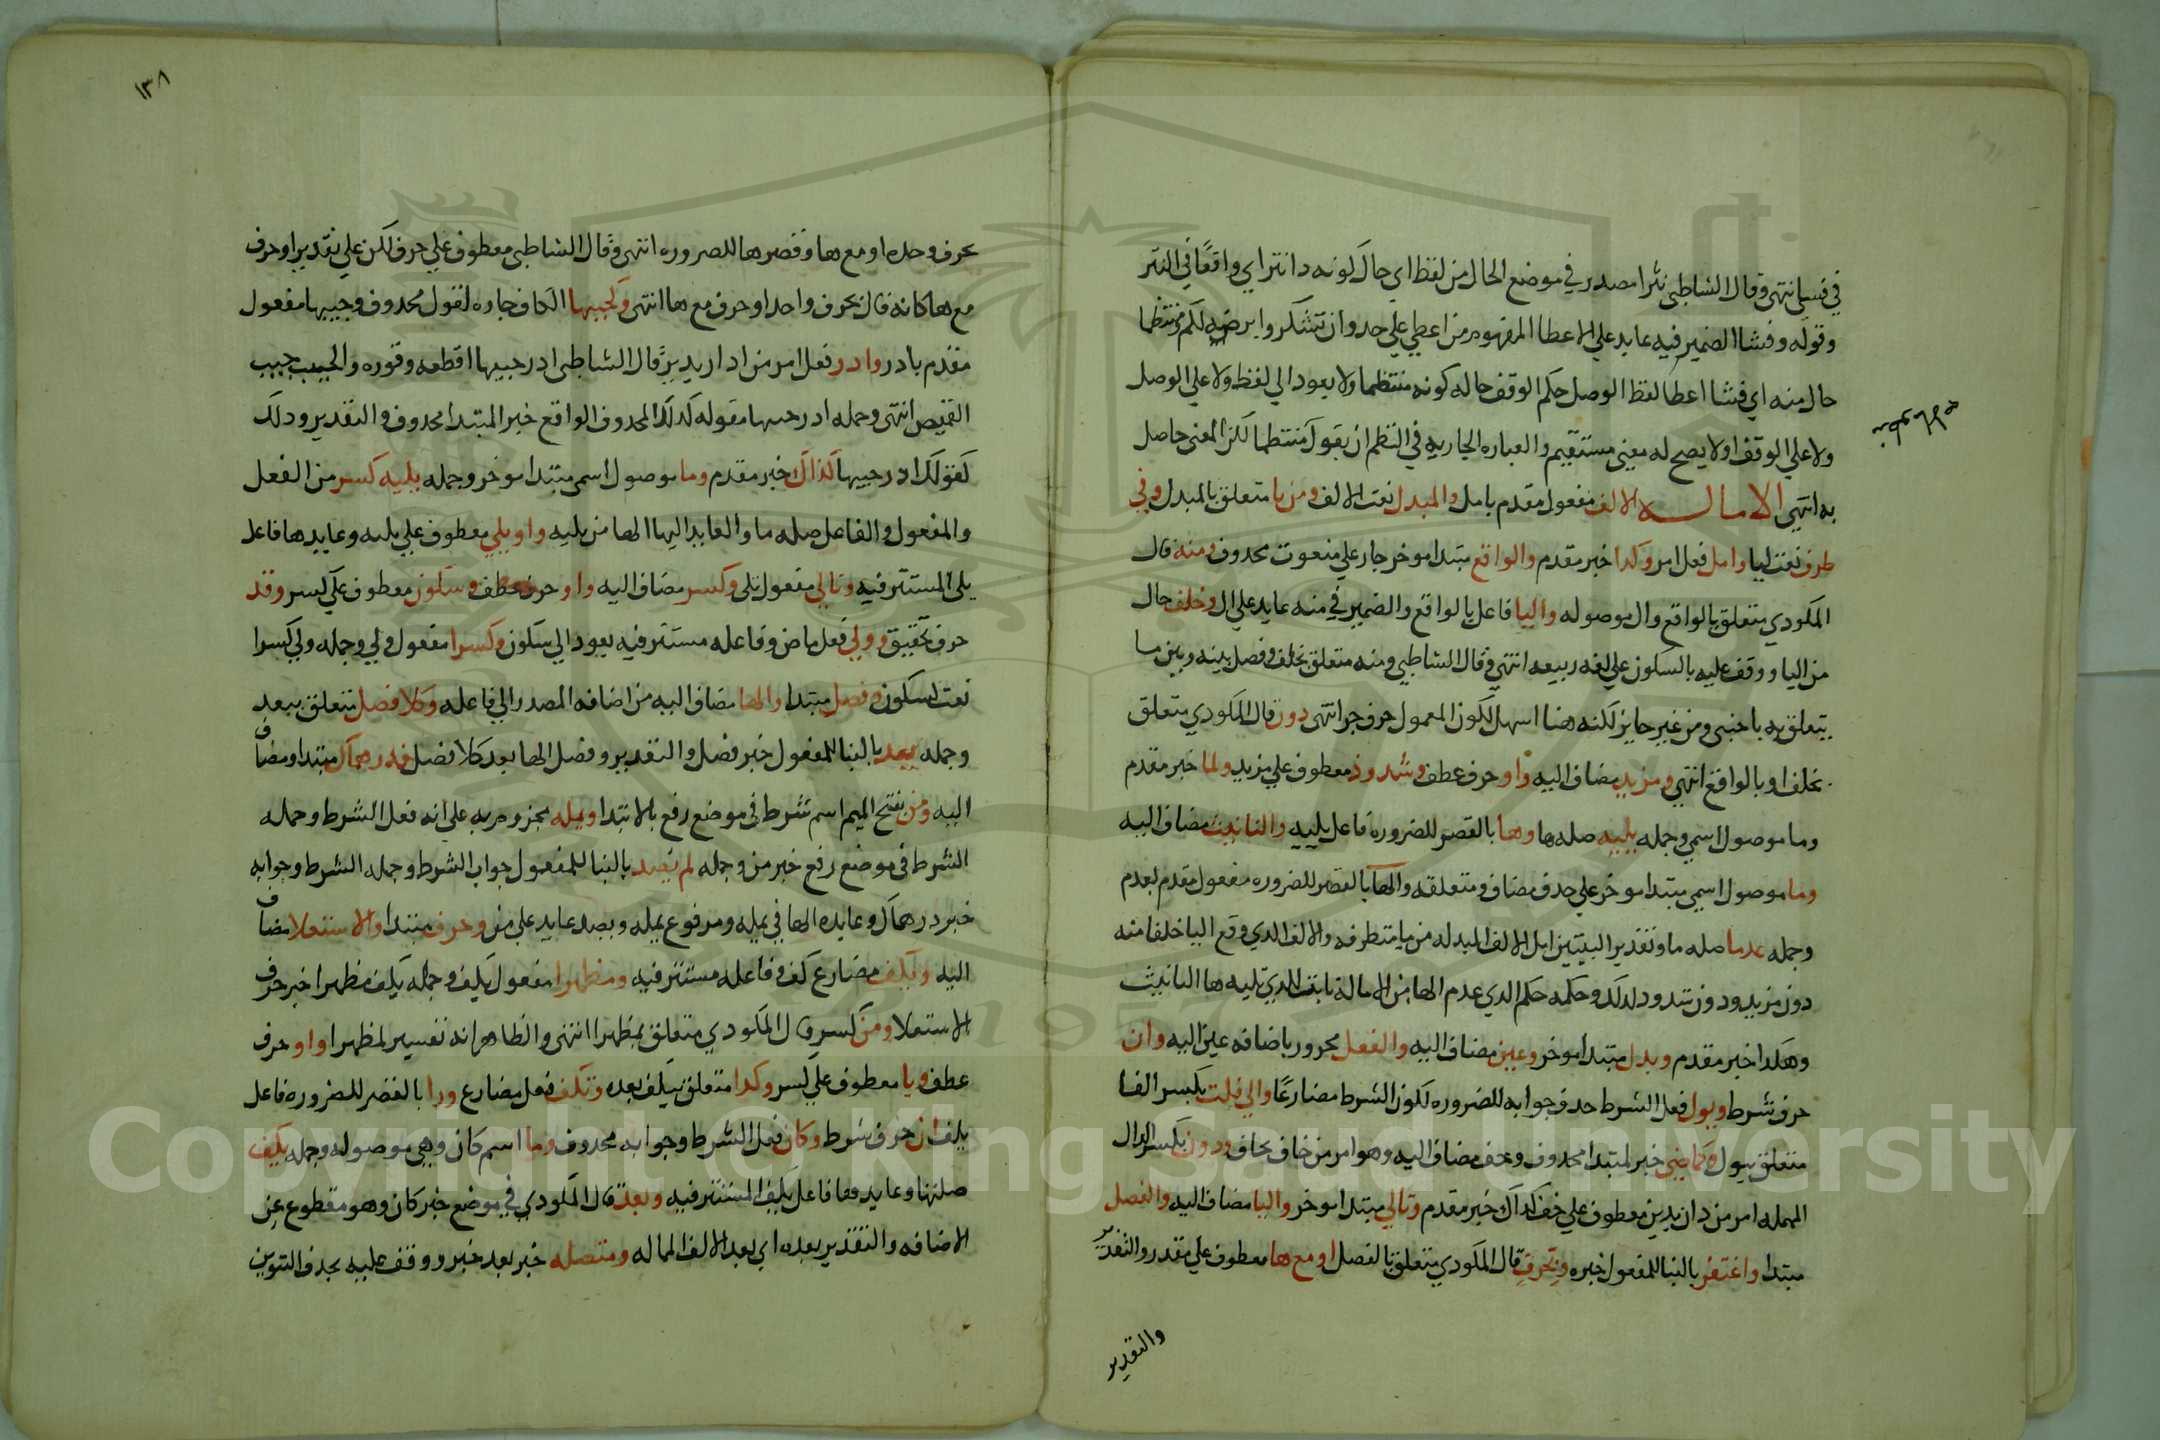 في فسل انتهى وقال الشاطبي نثرا مصدر في موضع الحال من لفظ اي حال كونه ذا نثر اي واقعًا في النثر
وقوله وفشا الضمير فيه عايد علي الاعطا المفهوم من اعطي علي حد وان تشكروا يرضه لكم ومنتظما
حال منه اي فشا اعطا لفظ الوصل حكم الوقف حاله كونه منتظما ولا يعود الي لفظ ولا علي الوصل
ولا علي الوقف اولا يصح له معني مستقيم والعباره الجاريه في النظم ان يقول منتظما لكن المعني حاصل
به انتهي الامالـــه الالف مفعول مقدم بامل والمبدل نعت الالف ومن يا متعلق بالمبدل وفي
طرف نعت ليا وامل فعل امر وكذا خبر مقدم والواقع مبتدا موخر جار علي منعوت محذوف ومنه قال
المكودي متعلق بالواقع وال موصوله واليا فاعل بالواقع والضمير في منه عايد علي ال وخلف حال
من اليا ووقف عليه بالسكون علي لغه ربيعه انتهي وقال الشاطبي ومنه متعلق بخلف وفصل بينه وبين ما
يتعلق به باجنبي ومن غير جايز لكنه هنا اسهل لكون المعمول حرف جر انتهى دون قال المكودي متعلق
بخلف او بالواقع انتهي ومزيد مضاف اليه واو حرف عطف وشذوذ معطوف علي مزيد ولما خبر مقدم
وما موصول اسمي وجمله يليه صله ها وها بالقصر للضروره فاعل يليه والتانيث مضاف اليه
وما موصول اسمي مبتدا موخر علي حذف مضاف ومتعلقه والها بالقصر للضروره مفعول مقدم لعدم
وجمله عدما صله ما وتقدير البيتين امل الالف المبدله من يا متطرفه والالف الذي وقع اليا خلفا منه
دون مزيد ودون شذوذ لذلك وحكمه حكم الذي عدم الها من الامالة ثابت للذي تليه ها التانيث
وهكذا خبر مقدم وبدل مبتدا موخر وعين مضاف اليه والفعل مجرور باضافه عين اليه وان
حرف شرط ويول فعل الشرط حذف جوابه للضروره لكون الشرط مضارعًا والي فلت بكسر الفا
متعلق بيول وكماضي خبر لمبتدا محذوف وخف مضاف اليه وهو امر من خاف يخاف ودن بكسر الدال
المهمله امر من دان يدين معطوف علي خف كذاك خبر مقدم وتالي مبتدا موخر واليا مضاف اليه والفصل
مبتدا واغتفر بالبنا للمفعول خبره وبحرفٍ قال المكودي متعلق بالفصل او مع ها معطوف علي مقدر والتقدير
والتقدير
١٣٨
بحرف وحده او مع ها وقصر ها للضروره انتهى وقال الشاطبي معطوف علي حرف لكن علي تقدير او حرف
مع ها كانه قال بحرف واحد او حرف مع ها انتهى وكجيبها الكاف جاره لقول محذوف وجيبها مفعول
مقدم بادر وادر فعل امر من ادار يدير قال الشاطبي ادر جيبها اقطعه وقوره والجيب جيب
القميص انتهى وجمله ادر جيبها مقوله كذلك المحذوف الواقع خبر المبتدا محذوف والتقدير وذلك
كقولك ادر جيبها كذاك خبر مقدم وما موصول اسمي مبتدا موخر وجمله يليه كسر من الفعل
والمفعول والفاعل صله ما والعايد اليها الها من يليه واو يلي معطوف علي يليه وعايدها فاعل
يلي المستتر فيه وتالي مفعول يلي وكسر مضاف اليه واو حرف عطف وسكون معطوف علي كسر وقد
حرف تحقيق وولي فعل ماض وفاعله مستتر فيه يعود الي سكون وكسرا مفعول ولي وجمله ولي كسرا
نعت لسكون وفصل مبتدا والها مضاف اليه من اضافه المصدر الي فاعله وكلا فصل متعلق بيعد
وجمله يعد بالبنا للمفعول خبر فصل والتقدير وفصل الها يعد كلا فصل فدرهماك مبتدا ومضاف
اليه ومن بفتح الميم اسم شرط في موضع رفع بالابتدا ويمله مجزوم به علي انه فعل الشرط وجمله
الشرط في موضع رفع خبر من وجمله لم يصد بالبنا للمفعول جواب الشرط وجمله الشرط وجوابه
خبر درهماك وعايده الها في يمله ومرفوع يمله ويصد عايد علي من وحرف مبتدا والاستعلا مضاف
اليه ويكف مضارع كف وفاعله مستتر فيه ومظهرا مفعول يكف وجمله يكف مظهرا خبر حرف
الاستعلا ومن كسر قال المكودي متعلق بمظهرا انتهى والظاهر انه تفسير لمظهرا واو حرف
عطف ويا معطوف علي كسر وكذا متعلق بيكف بعده وتكف فعل مضارع ورا بالقصر للضروره فاعل
يكف ان حرف شرط وكان فعل الشرط وجوابه محذوف وما اسم كان وهي موصوله وجمله يكف
صلتها وعايد ما فاعل يكف المستتر فيه وبعد قال المكودي في موضع خبر كان وهو مقطوع عن
الاضافه والتقدير بعده اي بعد الالف المماله ومتصله خبر بعد خبر ووقف عليه بحذف التنوين